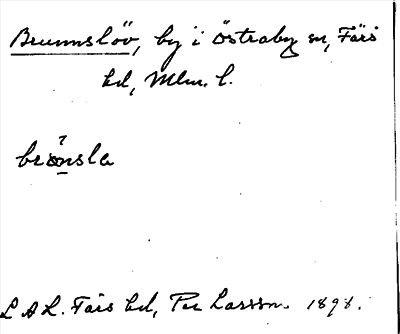 Brunnslöv, by i Östraby sn, Färs
hd, Mlm. l.
?
brönsla
L A L. Färs hd, Per Larsson. 1898.